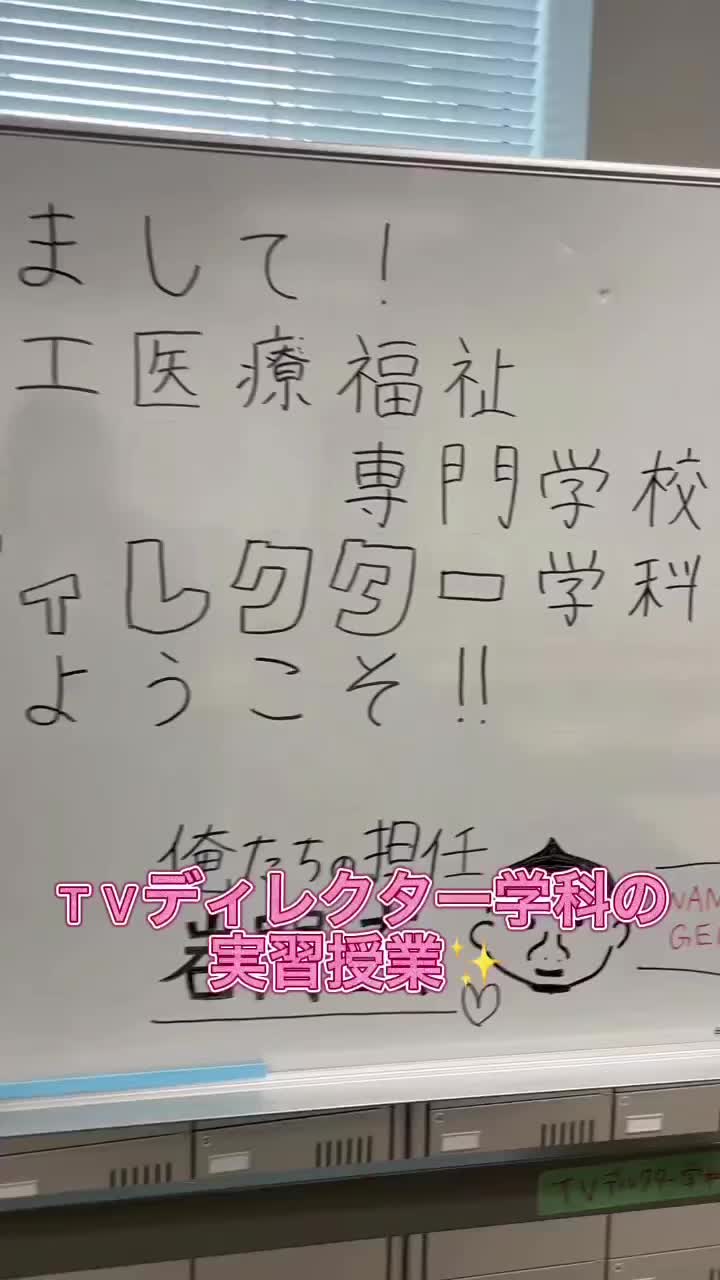 まして!
工医療福祉
専門学校
ィレクター学科
ようこそ!!
俺たちの担任
TVディレクター学科の
実習授業✨
NAM
GE
TVディレクター学